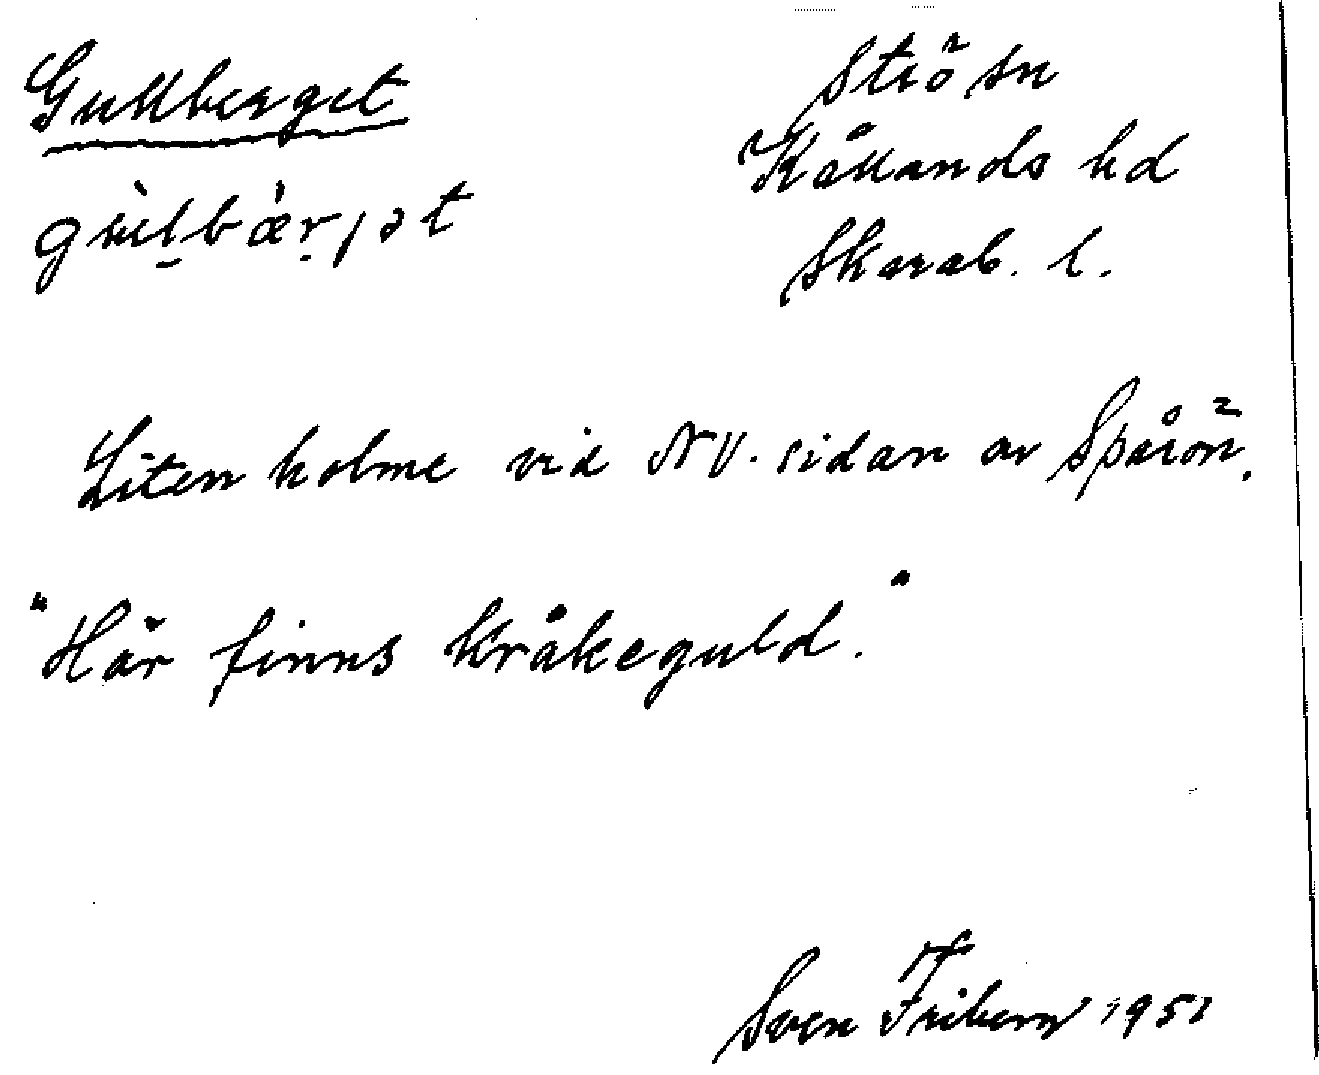 Gullberget
Strö sn
Kållands hd
Skarab. l.
Liten holme vid NV. sidan av Spårön.
"Här finns kråkeguld."
Sven Friberg 1951